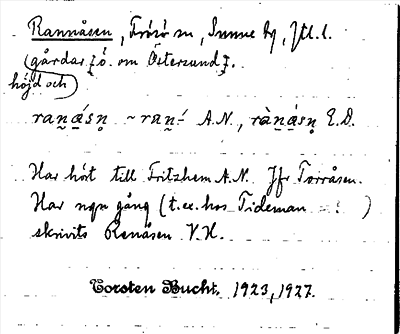 Rannåsen, Frösö sn, Sunne hd, Jtl. l.
(gårdar ö. om Östersund).
höjd och
ran̥ā́sn̥ ~ ran̥ A.N., rànā́sn̥ E.D.
Har hört till Fritzhem A.N. Jfr Torråsen.
Har ngn gång (t.ex. hos Tideman : )
skrivits Renåsen V.H.
Torsten Bucht. 1923, 1927.